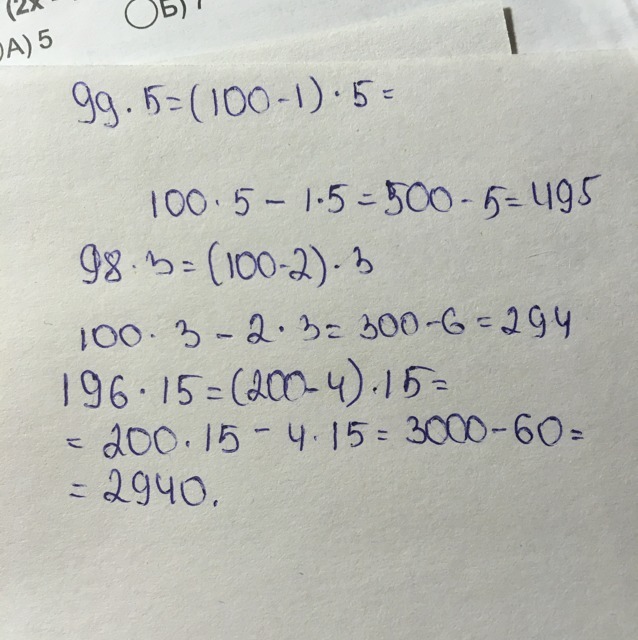 (2x
А) 5
Б)
99 · 5 = (100 - 1) · 5 =
100 · 5 - 1 · 5 = 500 - 5 = 495
98 · 3 = (100 - 2) · 3
100 · 3 - 2 · 3 = 300 - 6 = 294
196 · 15 = (200 - 4) · 15 =
= 200 · 15 - 4 · 15 = 3000 - 60 =
= 2940.